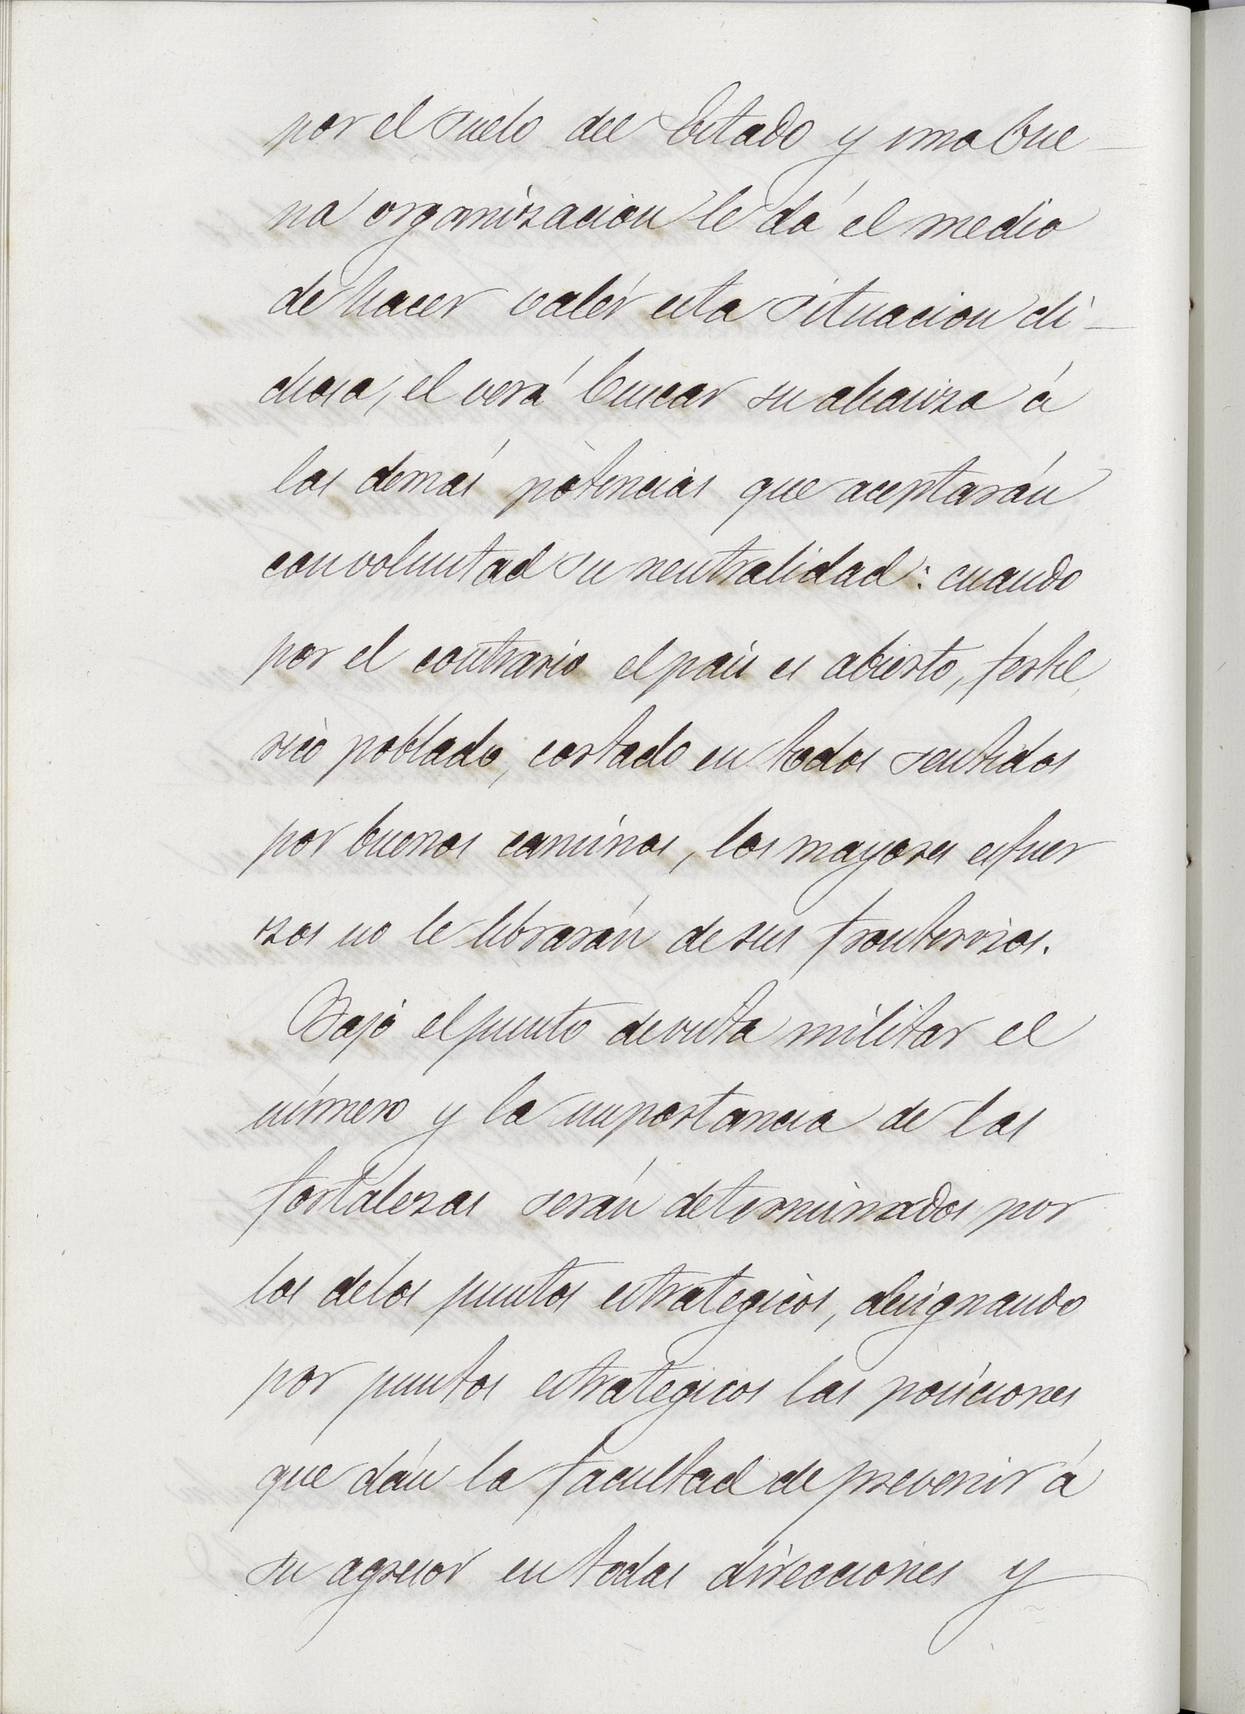 por el suelo del Estado y una bue-
na organizacion le dá el medio
de hacer valér esta situacion di-
chosa, el verá buscar su alianza á
las demás poténcias que aceptarán
con voluntad su neutralidad: cuando
por el contrario el país es abierto, fertil,
rico poblado, cortado en todos sentidos
por buenos caminos, los mayores esfuer
zos no le librarán de sus fronterizos.
Bajo el punto de vista militar el
número y la importancia de las
fortalezas serán determinados por
los de los puntos estrategicos, designando
por puntos estrategicos las posiciones
que dán la facultad de prevenir á
su agresor en todas direcciones y